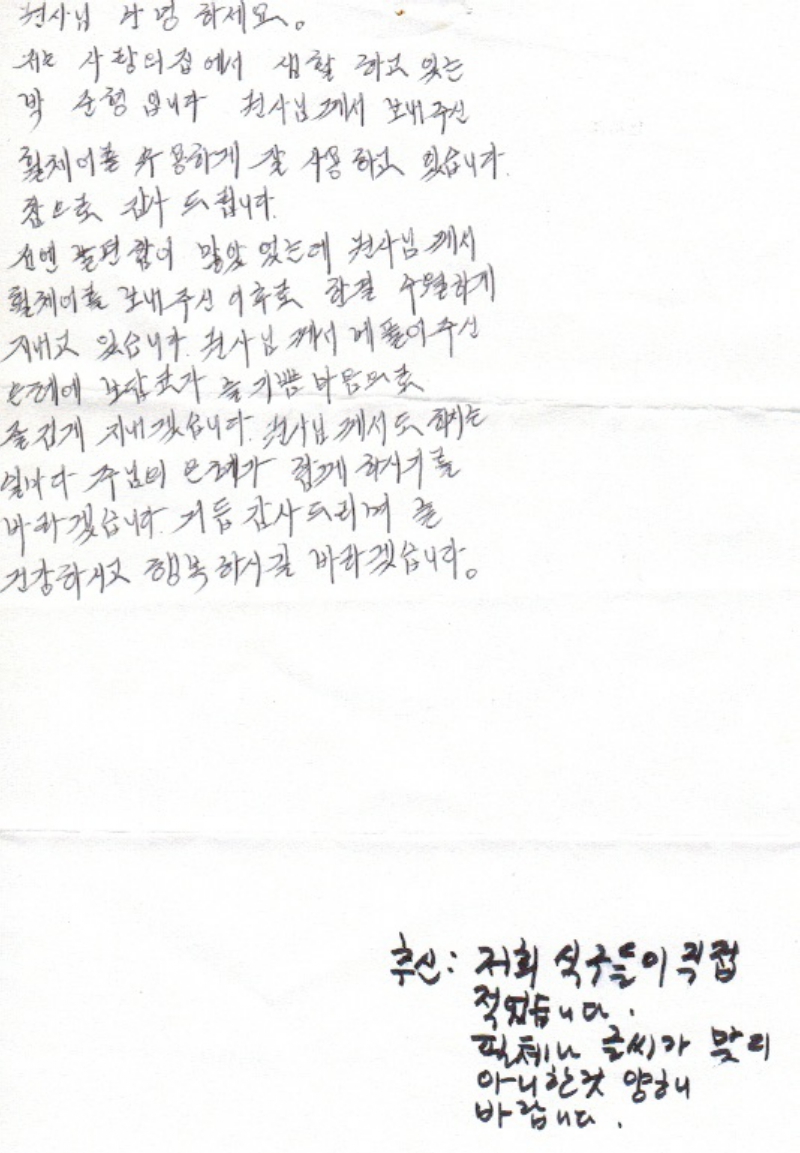 천사님 안녕 하세요。
저는 사랑의집에서 생활 하고 있는
박 순형 입니다 천사님께서 보내주신
휠체어를 유용하게 잘 사용하고 있습니다.
참으로 감사 드립니다.
전엔 불편함이 많았었는데 천사님께서
휠체어를 보내주신 이후로 한결 수월하게
지내고 있습니다. 천사님께서 베풀어주신
은혜에 보답코자 늘 기쁨마음의로
즐겁게 지내겠습니다. 천사님께서도 하시는
일마다 주님의 은혜가 함께 하시기를
바라겠습니다. 거듭 감사드리며 늘
건강하시고 행복하시길 바라겠습니다。
추신: 저희 식구들이 직접
적었습니다.
필체나 글씨가 맞지
아니한것 양해
바랍니다.